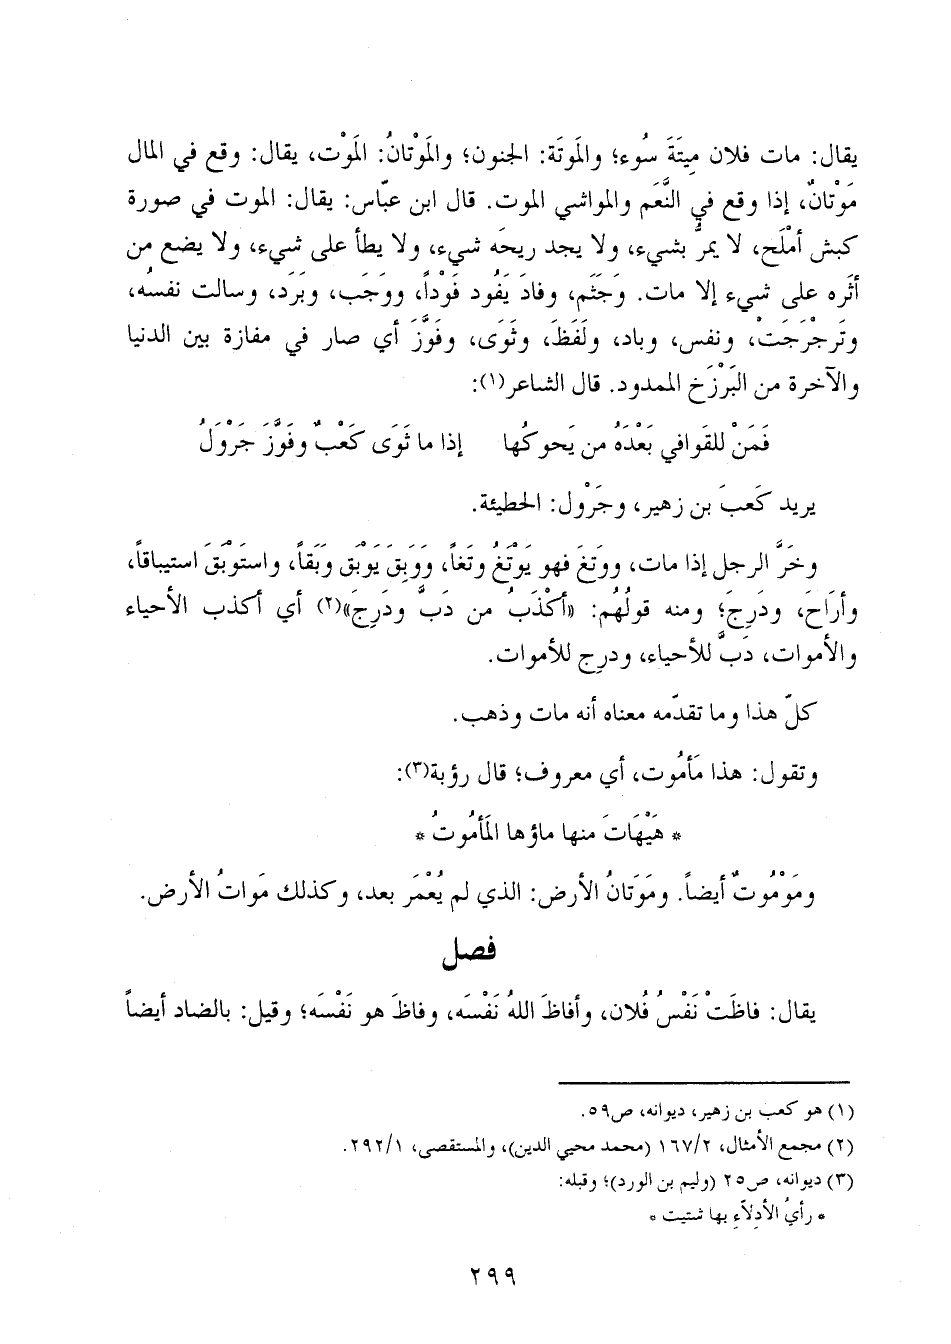 يقال: مات فلان مِيتَةَ سُوء؛ والمَوتَة: الجنون؛ والمَوْتانُ: المَوْت، يقال: وقع في المال
مَوْتانٌ، إذا وقع في النَّعَم والمواشي الموت. قال ابن عبّاس: يقال: الموت في صورة
كبش أمْلَح، لا يمرُّ بشيء، ولا يجد ريحَه شيء، ولا يطأ على شيء، ولا يضع من
أثَره على شيء إلا مات. وجَثَم، وفادَ يَفُود فَوْداً، ووَجَب، وبَرَد، وسالت نفسُه،
وتَرجْرَجَتْ، ونفس، وباد، ولَفَظَ، وثَوَى، وفَوَّزَ أي صار في مفازة بين الدنيا
والآخرة من البَرْزَخ الممدود. قال الشاعر(١):
فَمَنْ للقوافي بَعْدَهُ من يَحوكُها إذا ما ثَوَى كَعْبٌ وفَوَّزَ جَرْوَلُ
يريد كَعبَ بن زهير، وجَرْول: الحطيئة.
وخَرَّ الرجل إذا مات، ووَتَغَ فهو يَوْتَغُ وتَغاً، ووَبِقَ يَوْبَق وَبَقاً، واستَوْبَقَ استيباقاً،
وأرَاحَ، ودَرِجَ؛ ومنه قولُهُم: «أكْذَبُ من دَبَّ ودَرِجَ»(٢) أي أكذب الأحياء
والأموات، دَبَّ للأحياء، ودرِج للأموات.
كلّ هذا وما تقدّمه معناه أنه مات وذهب.
وتقول: هذا مَأمُوت، أي معروف؛ قال رؤبة(٣):
* هَيْهَاتَ منها ماؤها المَأمُوتُ *
ومَوْمُوتٌ أيضاً. ومَوَتانُ الأرض: الذي لم يُعْمَر بعد، وكذلك مَواتُ الأرض.
فصل
يقال: فاظَتْ نَفْسُ فُلان، وأفاظَ اللهُ نَفْسَه، وفاظَ هو نَفْسَه؛ وقيل: بالضاد أيضاً
(١) هو كعب بن زهير، ديوانه، ص٥٩.
(٢) مجمع الأمثال، ١٦٧/٢ (محمد محيي الدين)، والمستقصى، ٢٩٢/١.
(٣) ديوانه، ص٢٥ (وليم بن الورد)؛ وقبله:
* رأيُ الأدِلاَّءِ بها شتيت *
٢٩٩